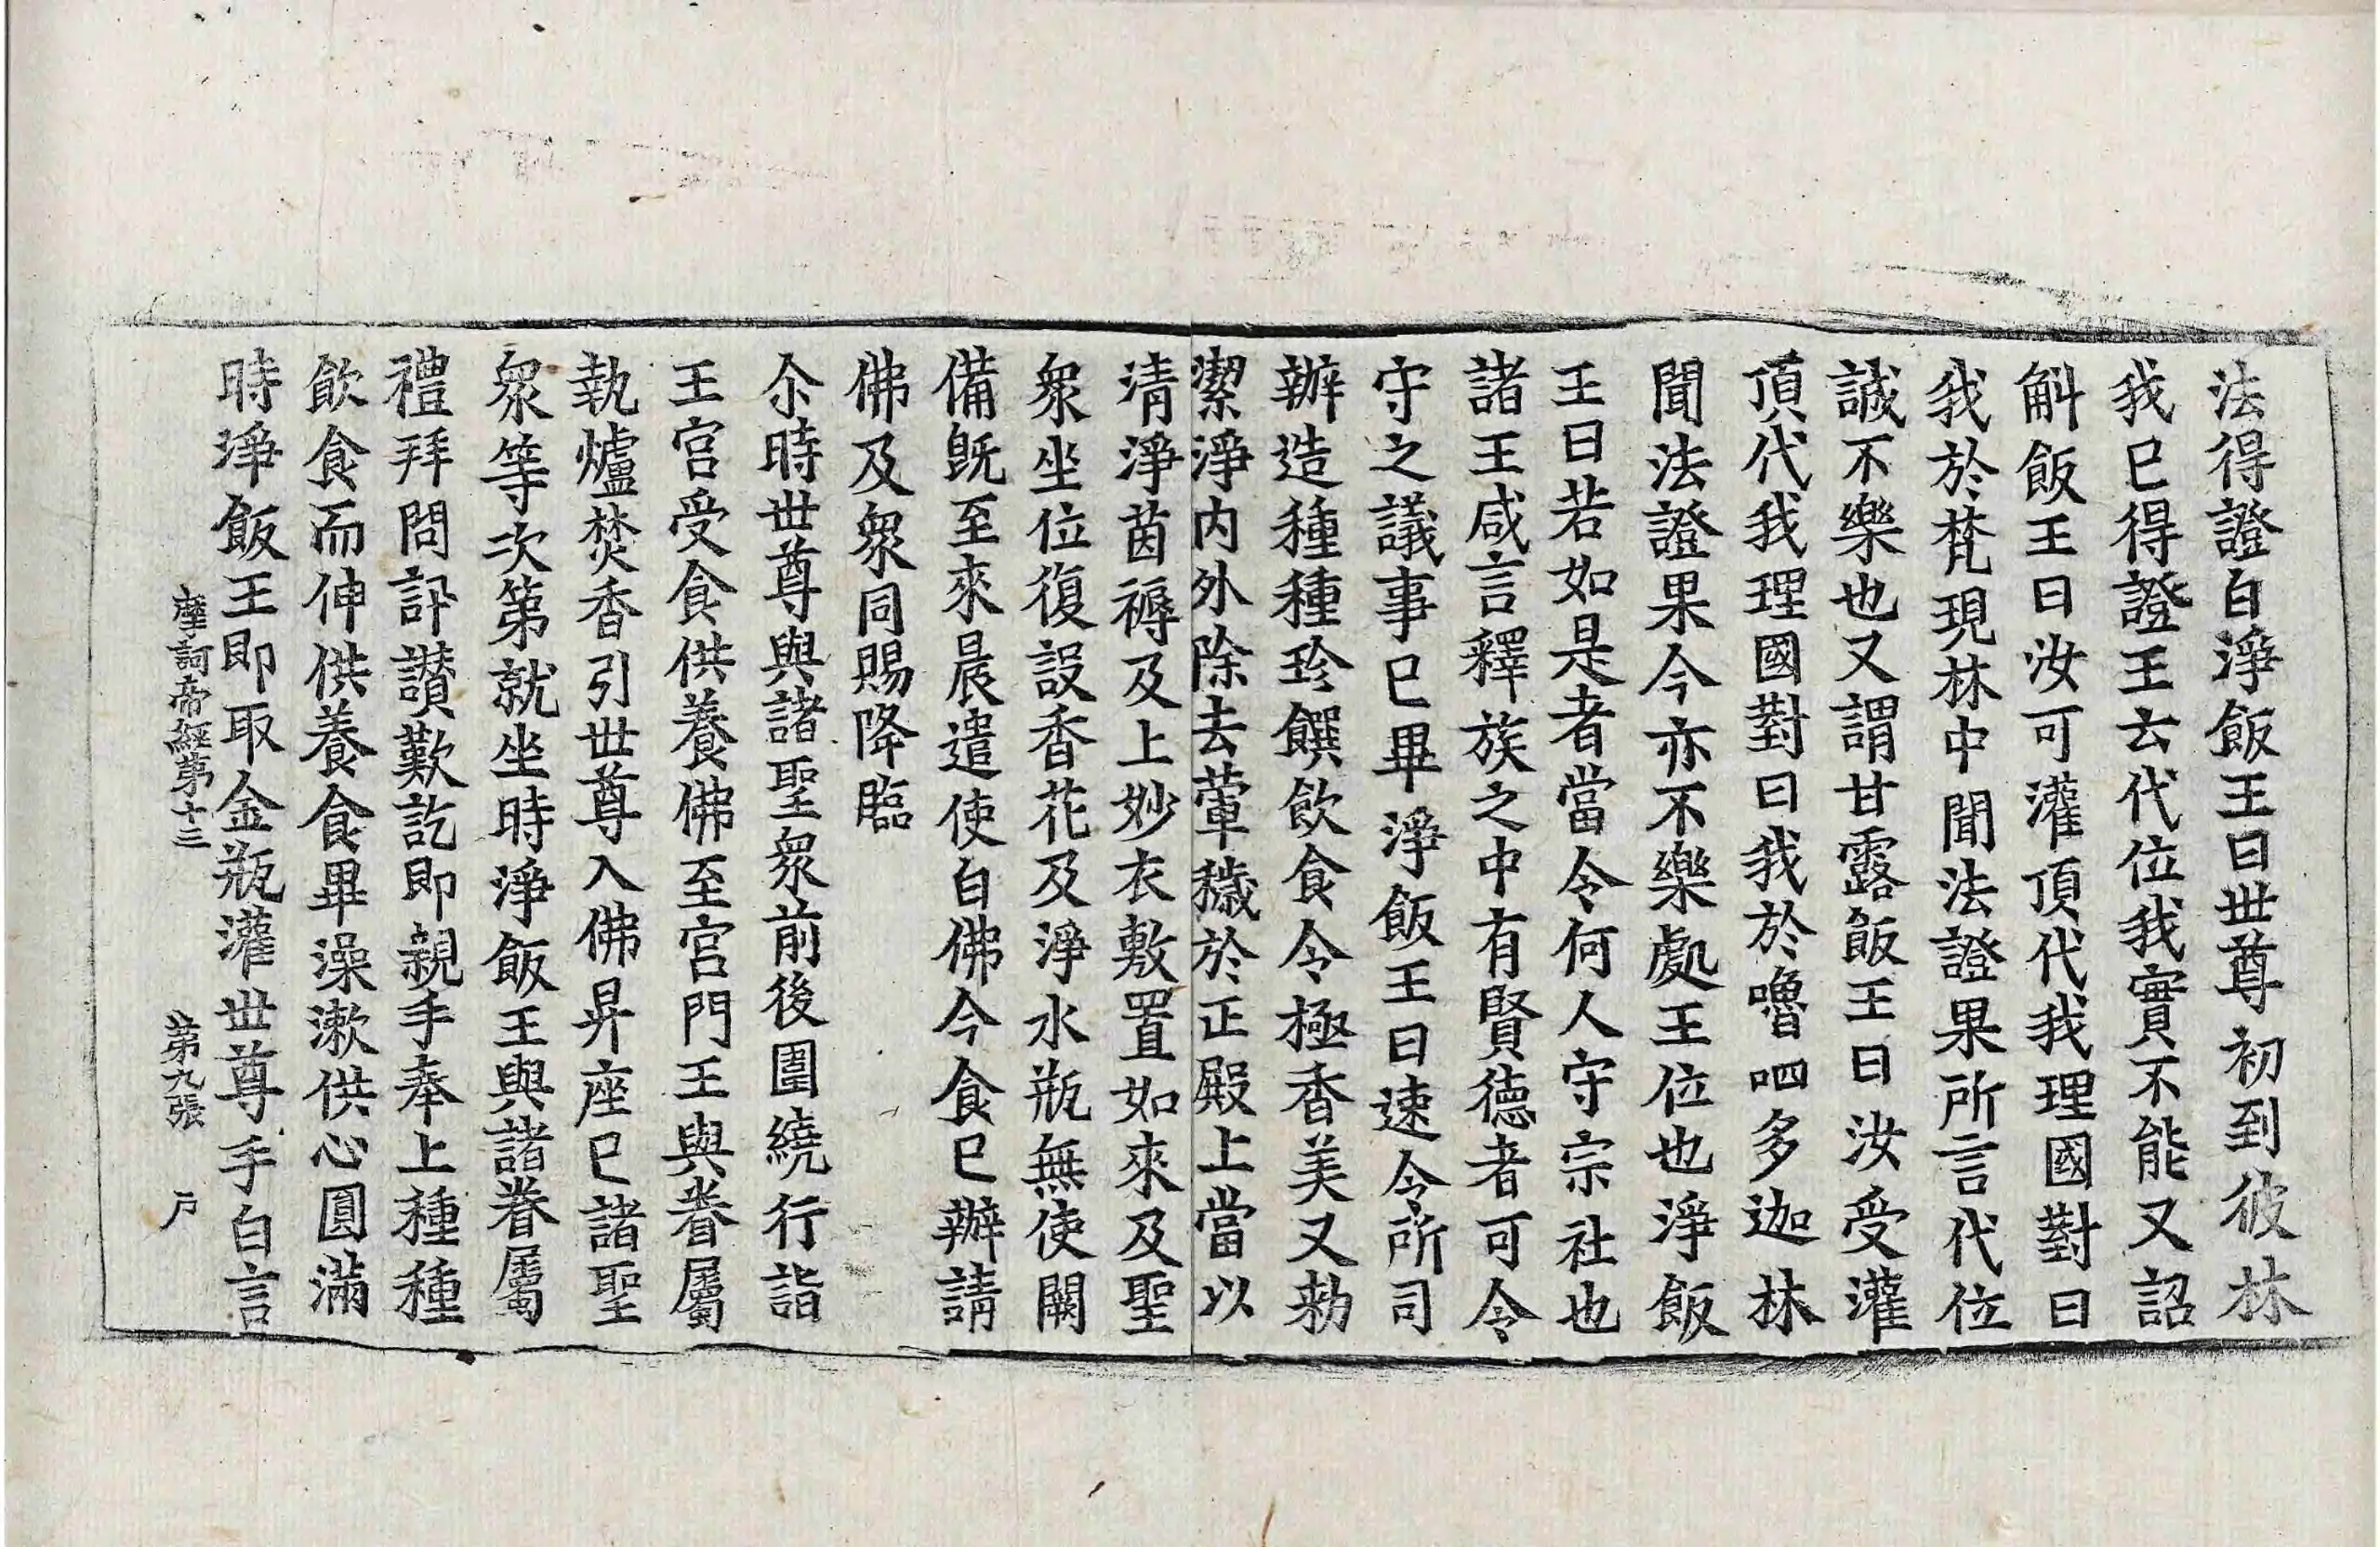 法得證白淨飯王曰世尊初到彼林
我已得證王去代位我實不能又詔
斛飯王曰汝可灌頂代我理國對曰
我於梵現林中聞法證果所言代位
誠不樂也又謂甘露飯王曰汝受灌
頂代我理國對曰我於嚕呬多迦林
聞法證果今亦不樂處王位也淨飯
王曰若如是者當令何人守宗社也
諸王咸言釋族之中有賢德者可令
守之議事已畢淨飯王曰速令所司
辦造種種珍饌飲食令極香美又勑
潔淨内外除去葷穢於正殿上當以
清淨茵褥及上妙衣敷置如來及聖
衆坐位復設香花及淨水瓶無使闕
備旣至來晨遣使白佛今食已辦請
佛及衆同賜降臨
尒時世尊與諸聖衆前後圍繞行詣
王宮受食供養佛至宮門王與眷屬
執爐焚香引世尊入佛昇座已諸聖
衆等次第就坐時淨飯王與諸眷屬
禮拜問訊讃歎訖即親手奉上種種
飲食而伸供養食畢澡漱供心圓滿
時淨飯王即取金瓶灌世尊手白言
摩訶帝經第十三 第九張 戶